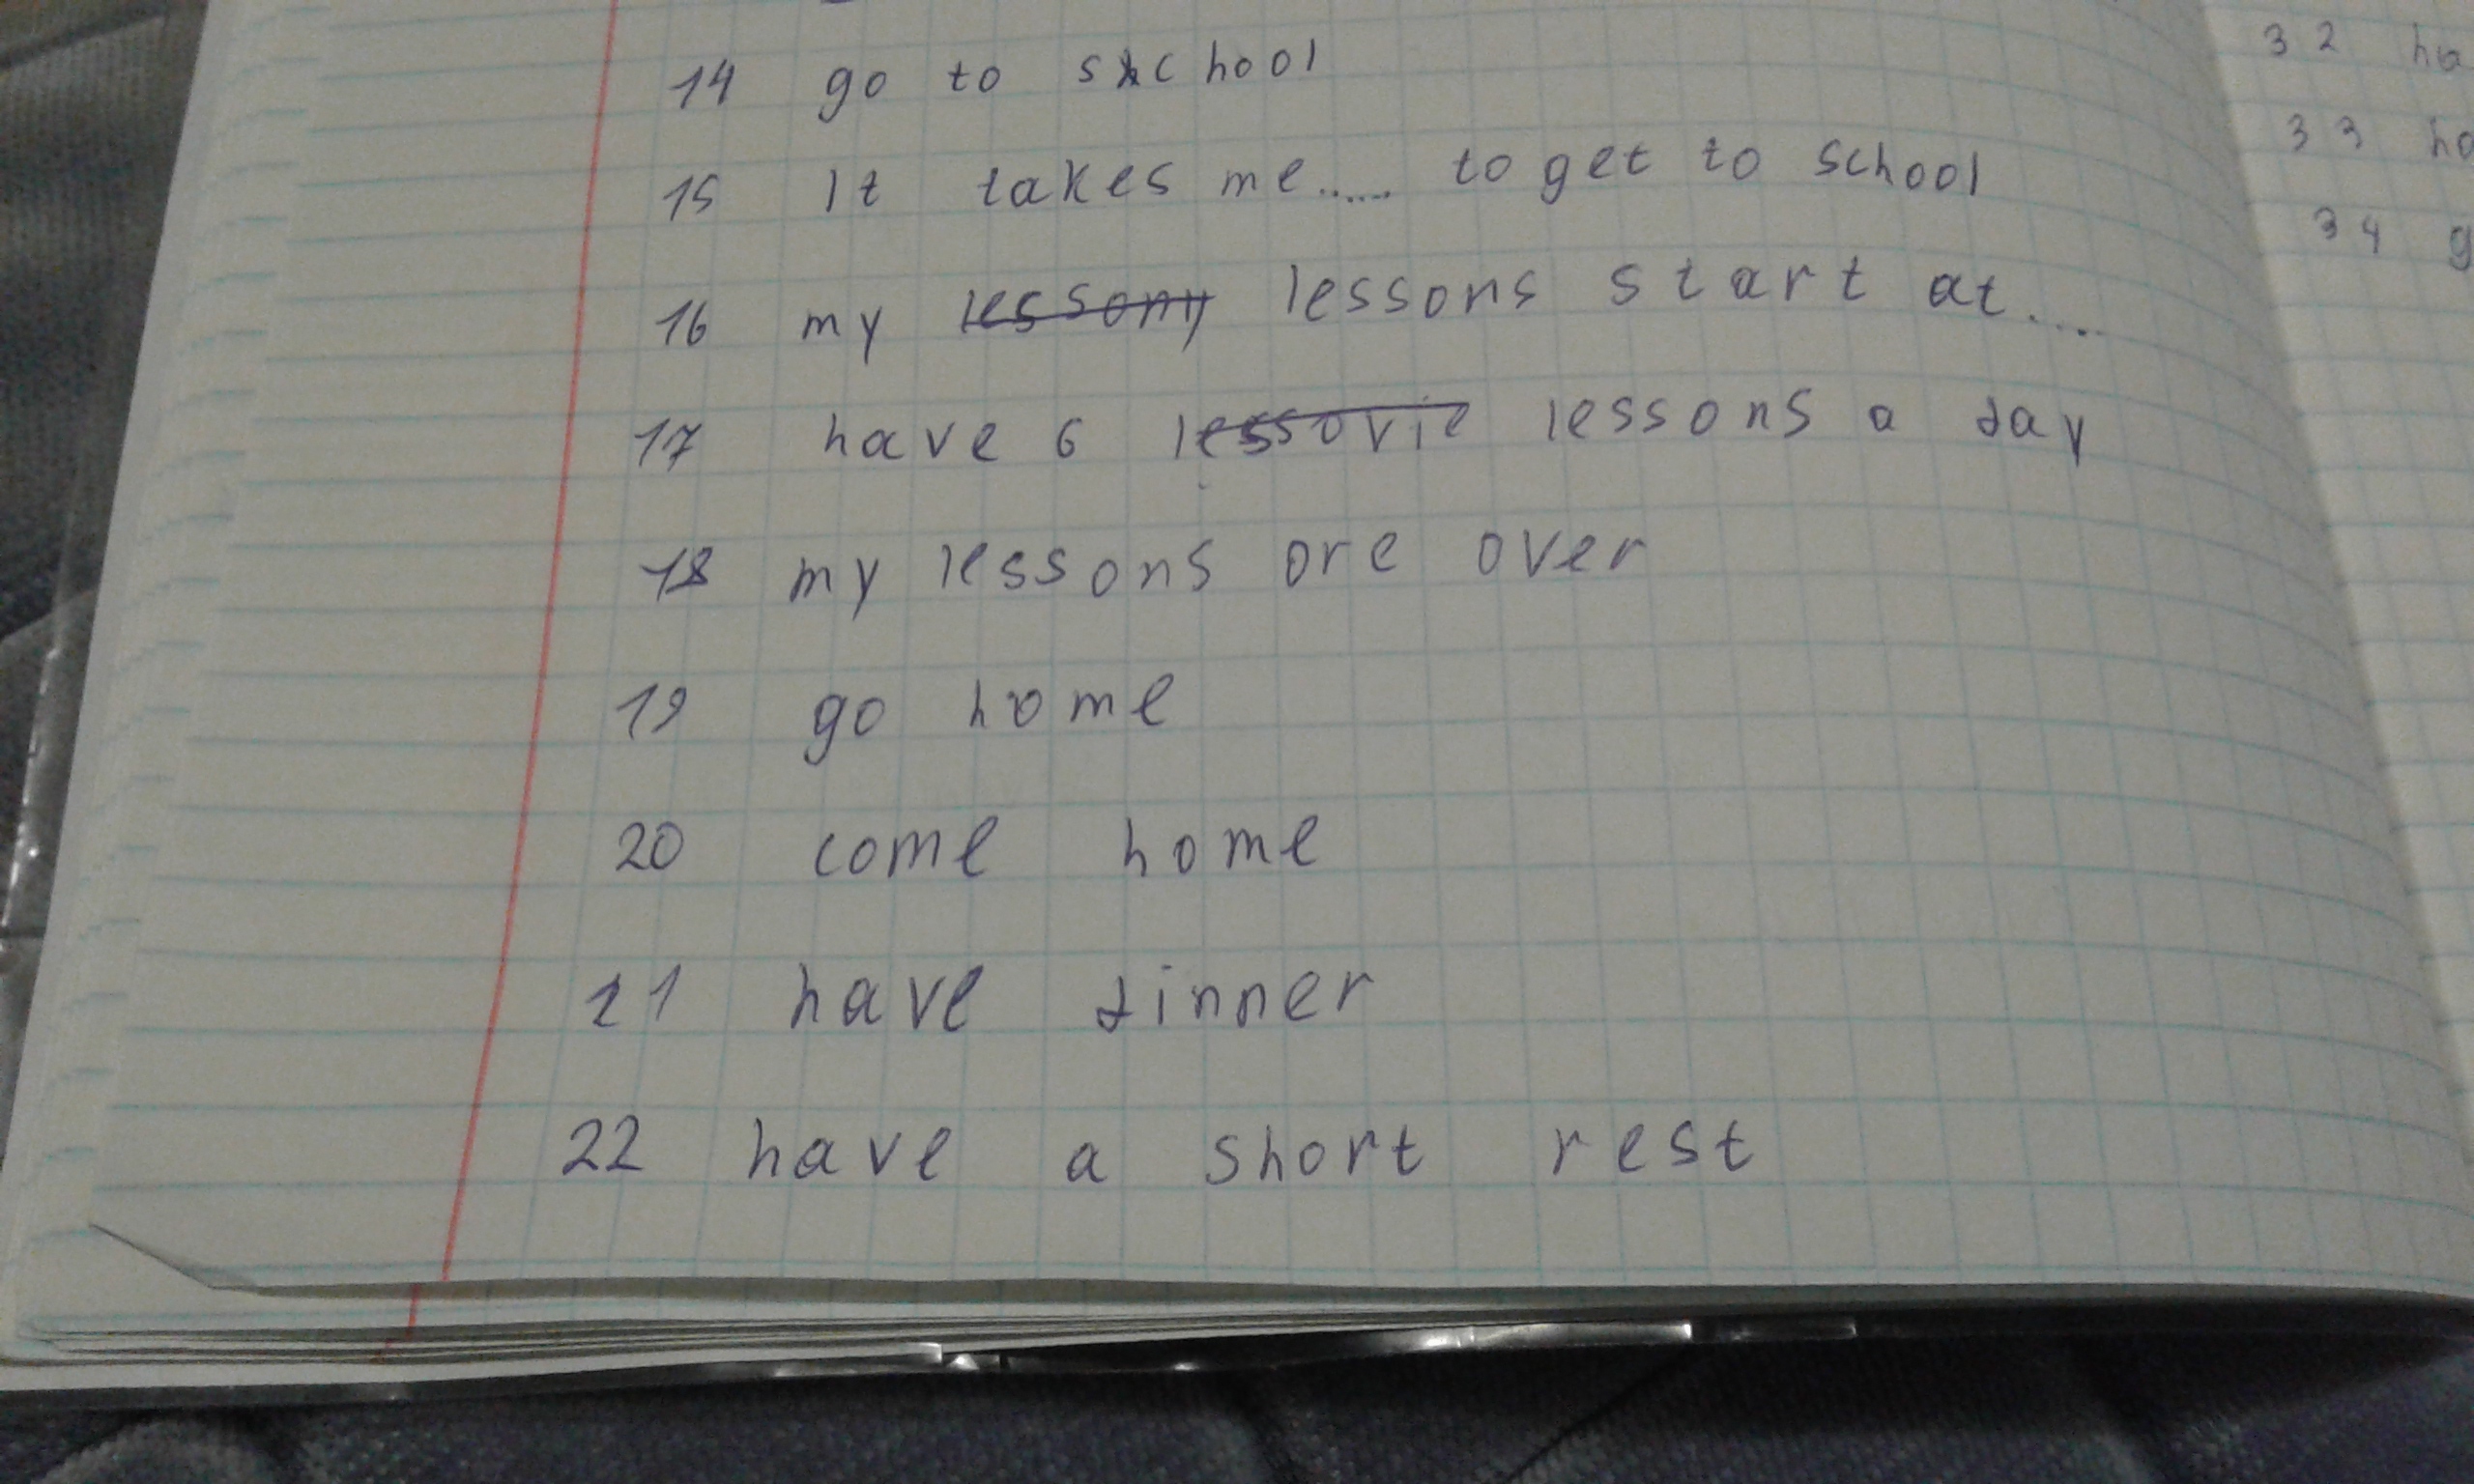 14 go to school
15 It takes me..... to get to school
16 my lessons start at....
17 have 6 lessons a day
18 my lessons are over
19 go home
20 come home
21 have dinner
22 have a short rest
32 ha
33 ha
34 g